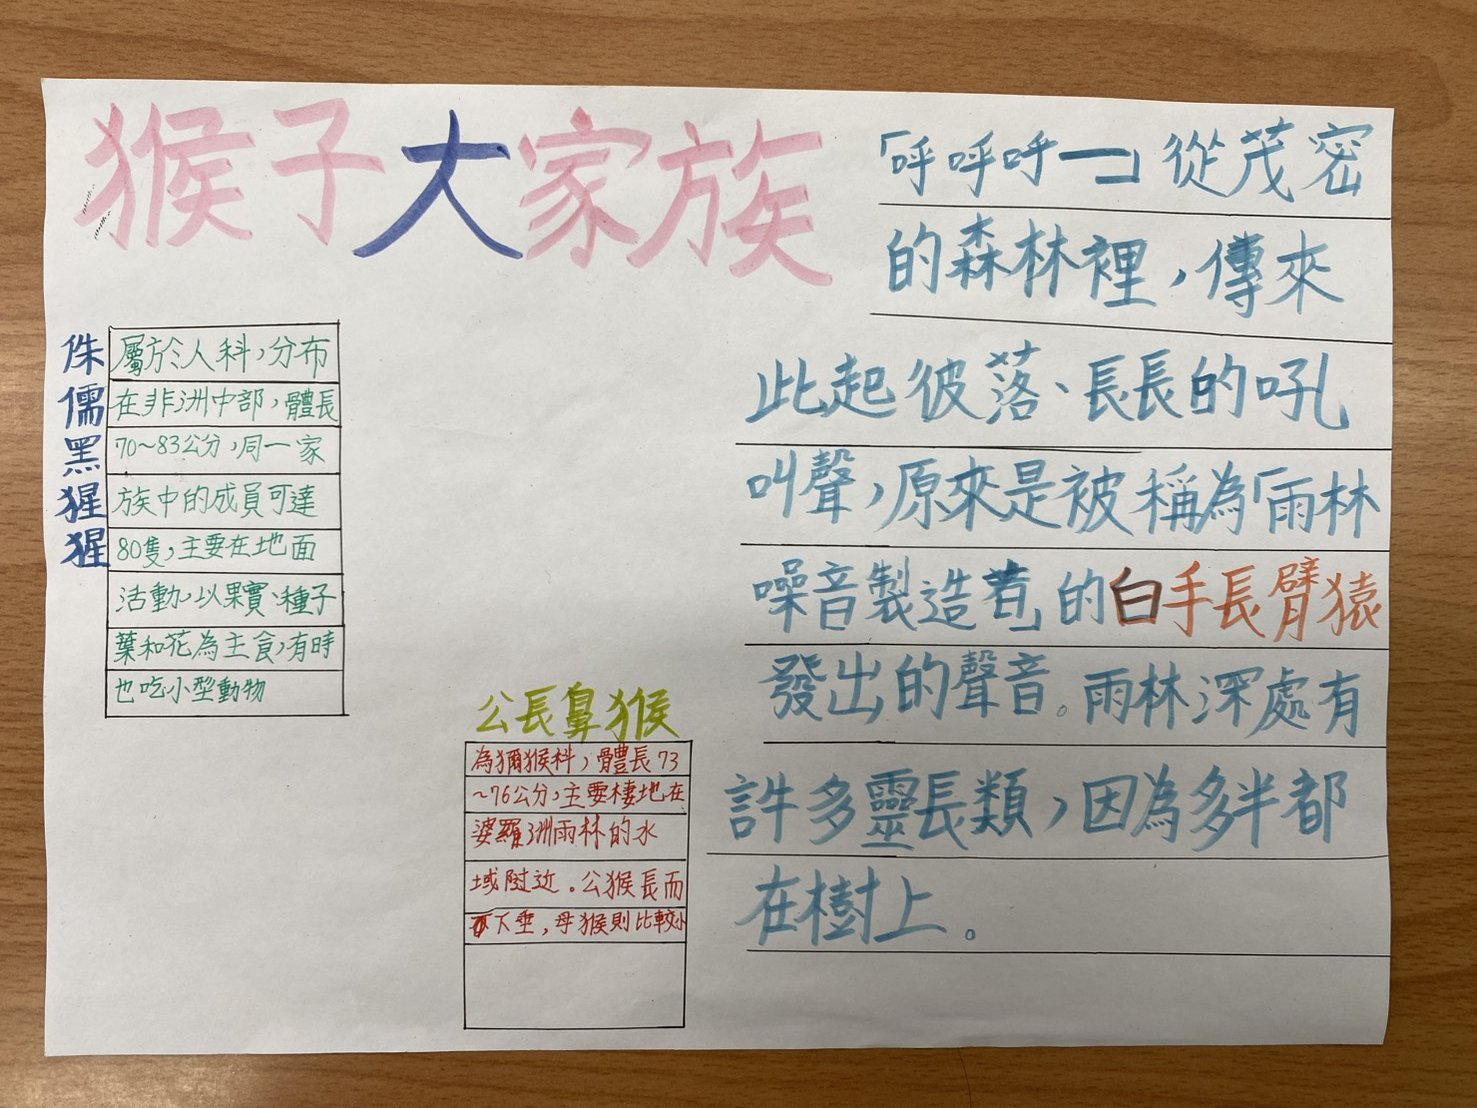 猴子大家族
「呼呼呼──」從茂密
的森林裡,傳來
此起彼落、長長的吼
叫聲,原來是被稱為「雨林
噪音製造者」的白手長臂猿
發出的聲音。雨林深處有
許多靈長類,因為多半都
在樹上。
侏儒黑猩猩
屬於人科,分布
在非洲中部,體長
70~83公分,同一家
族中的成員可達
80隻,主要在地面
活動,以果實、種子
葉和花為主食,有時
也吃小型動物
公長鼻猴
為獼猴科,體長73
~76公分,主要棲地在
婆羅洲雨林的水
域附近。公猴長而
下垂,母猴則比較小